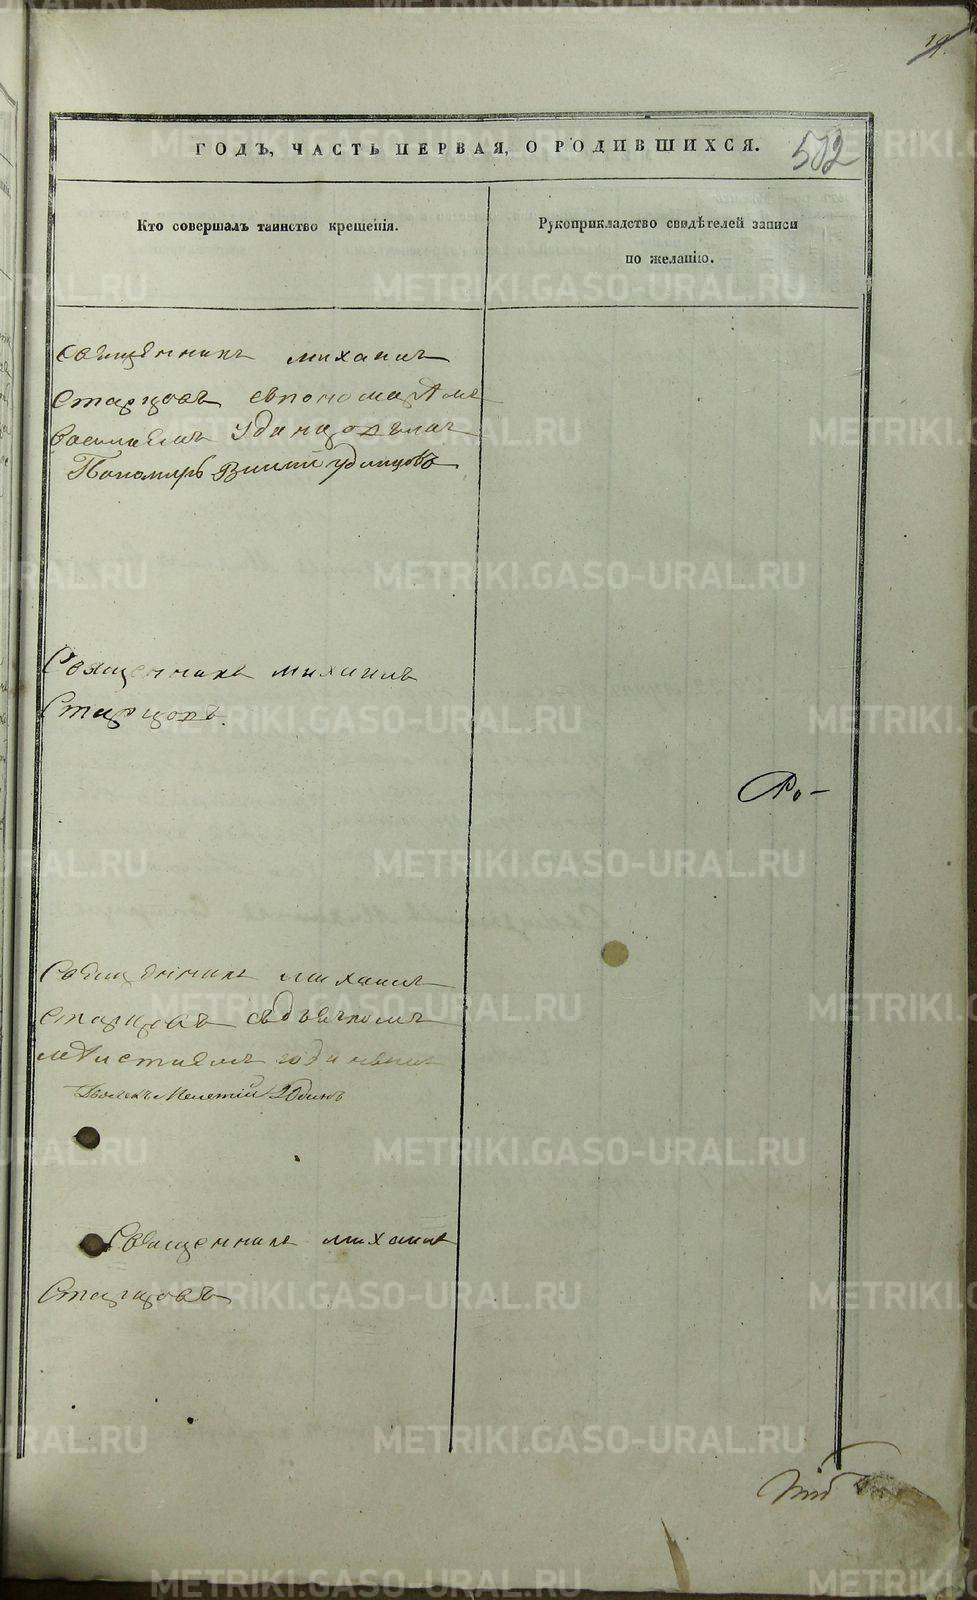 19.
ГОДЪ, ЧАСТЬ ПЕРВАЯ, О РОДИВШИХСЯ.
502
Кто совершалъ таинство крещенія.
Рукоприкладство свидѣтелей записи
по желанію.
Священникъ михаилъ
Старцовъ спономаремъ
василиемъ
Пономарь
Священникъ михаилъ
Старцовъ.
Священникъ михаилъ
Старцовъ сдьячкомъ
мелетиемъ
Дьячекъ Мелетій
Священникъ михаилъ
Старцовъ
METRIKI.GASO-URAL.RU